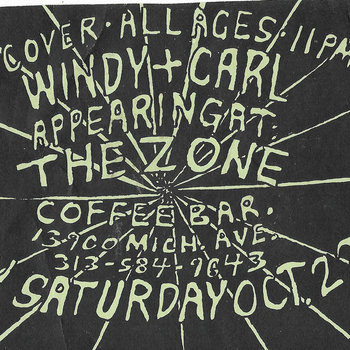 COVER · ALL AGES · 11 PM
WINDY + CARL
APPEARING AT.
THE ZONE
COFFEE BAR.
13900 MICH. AVE.
313-584-9643
SATURDAY OCT. 2